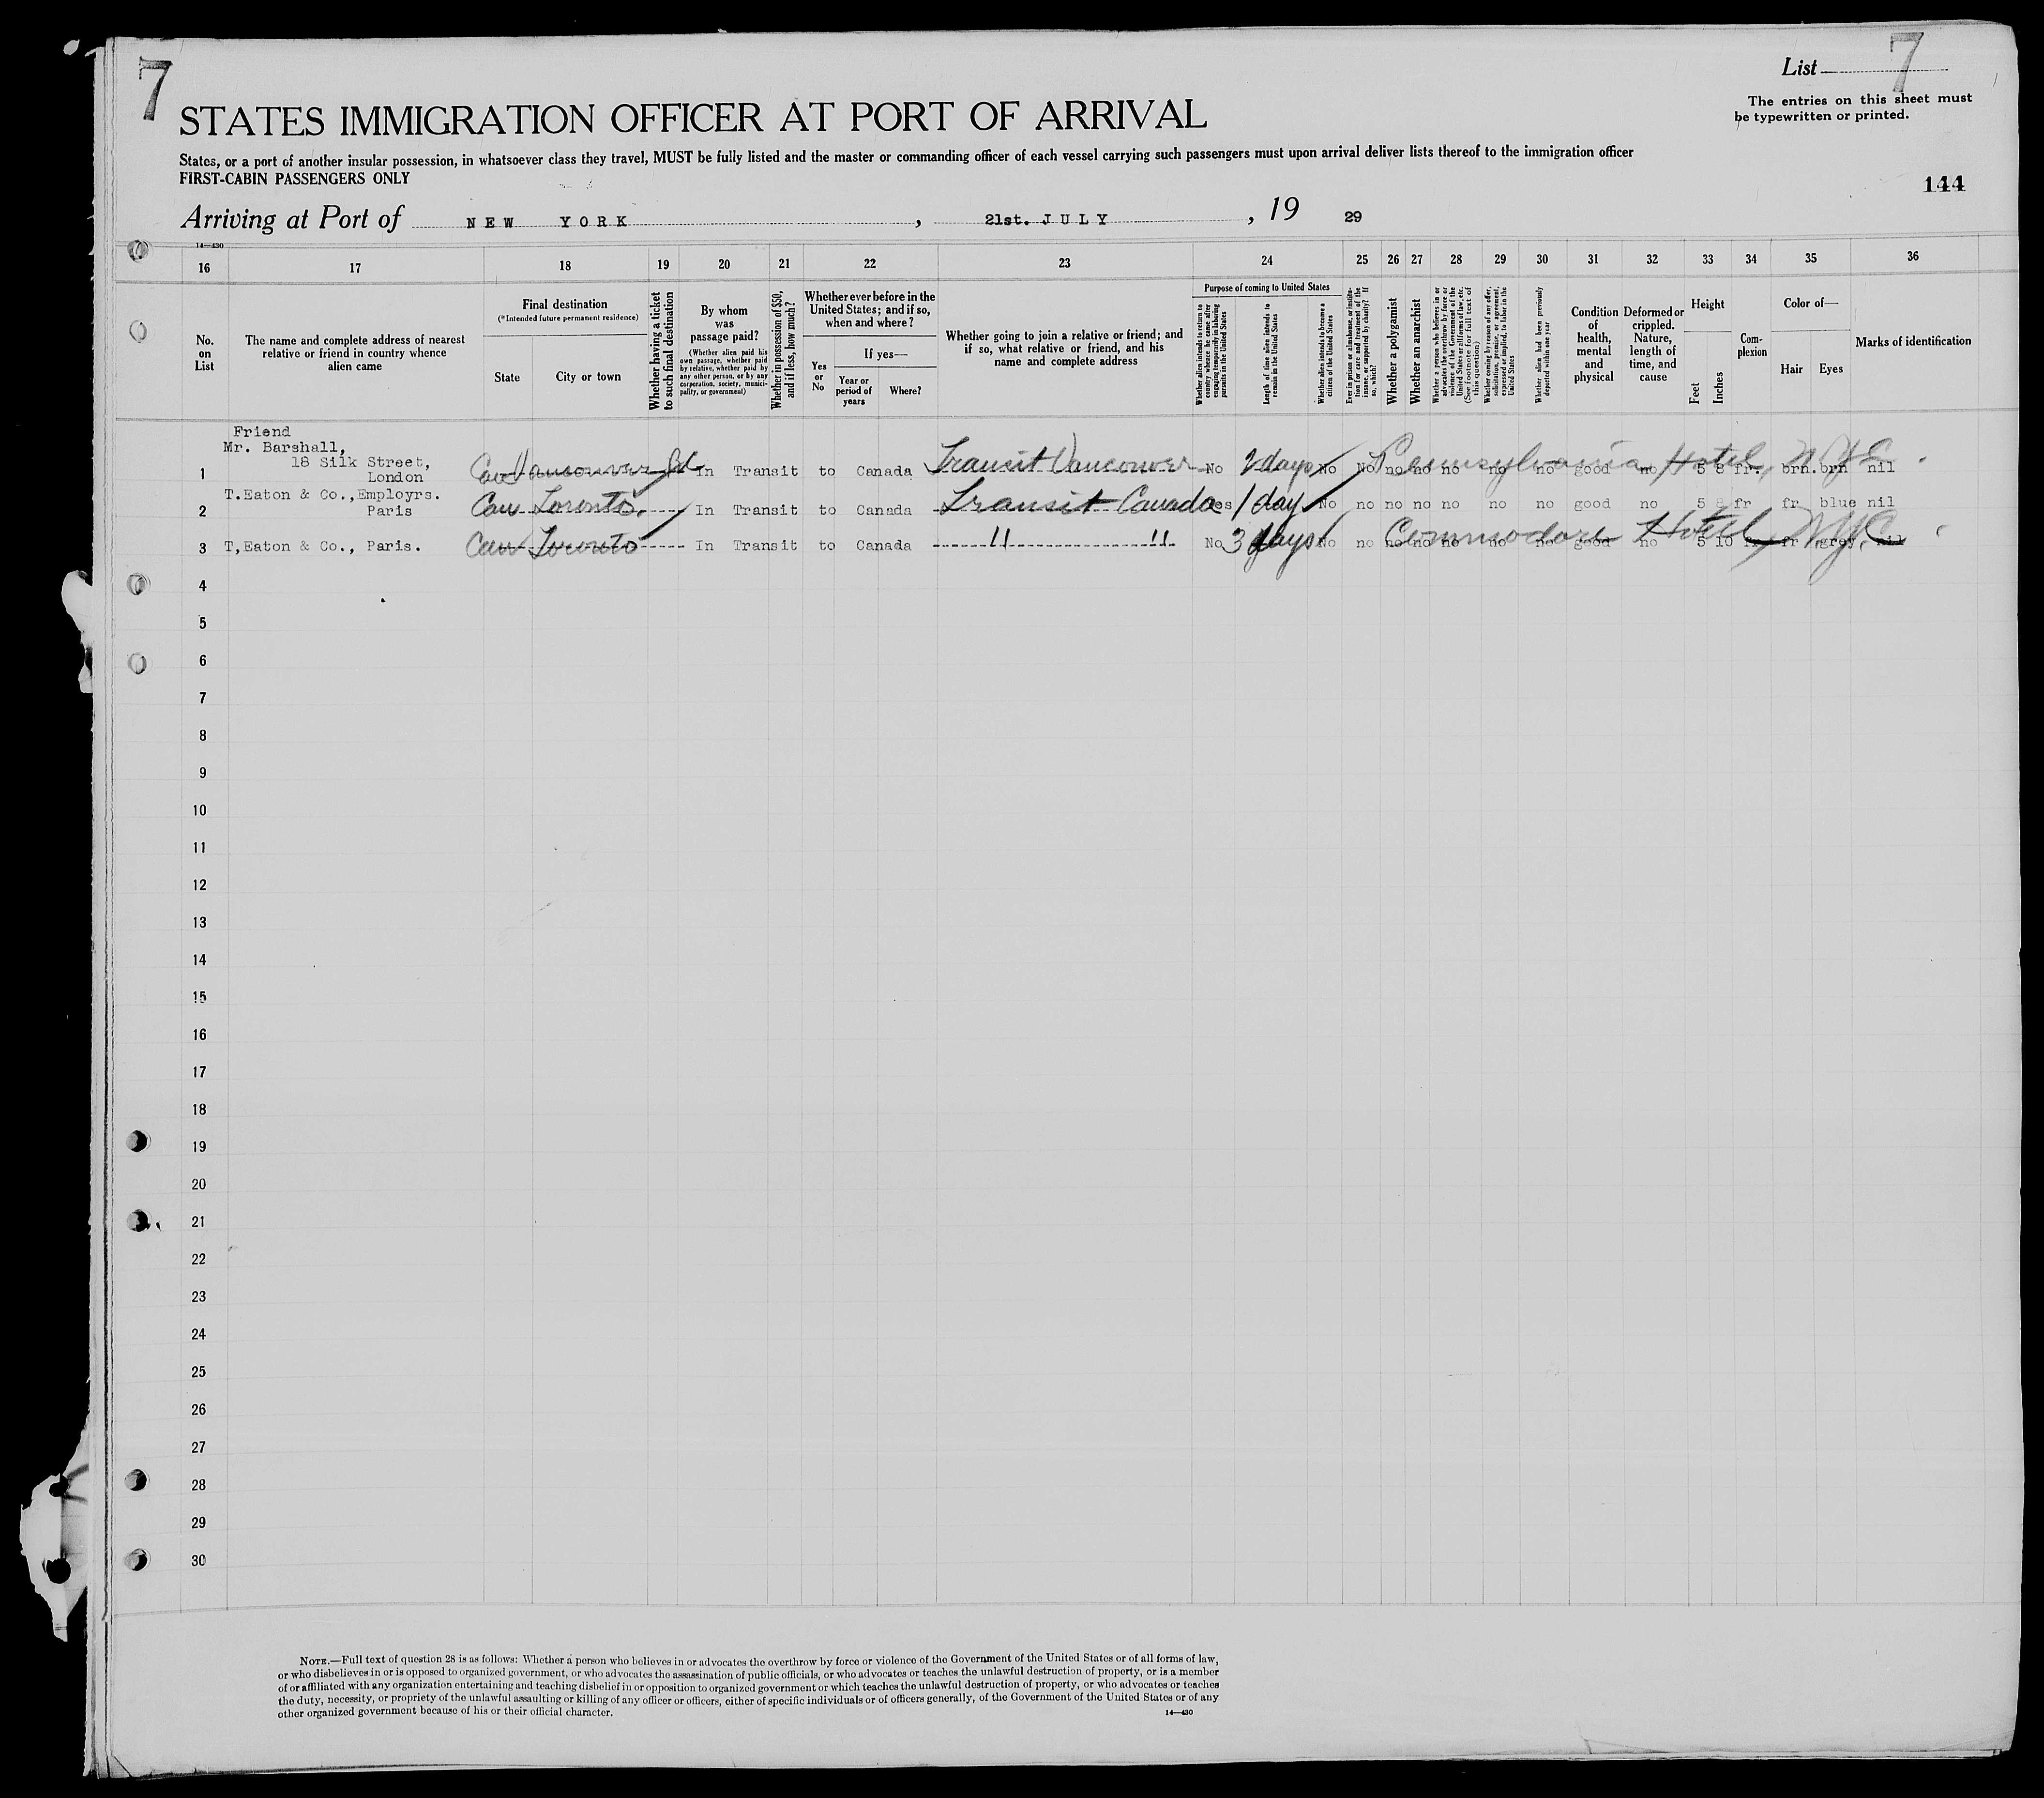 7
List 7
The entries on this sheet must
be typewritten or printed.
STATES IMMIGRATION OFFICER AT PORT OF ARRIVAL
States, or a port of another insular possession, in whatsoever class they travel, MUST be fully listed and the master or commanding officer of each vessel carrying such passengers must upon arrival deliver lists thereof to the immigration officer
FIRST-CABIN PASSENGERS ONLY
144
Arriving at Port of NEW YORK, 21st. JULY, 19 29
14—430
16 17 18 19 20 21 22 23 24 25 26 27 28 29 30 31 32 33 34 35 36
No. on List
The name and complete address of nearest relative or friend in country whence alien came
Final destination
(*Intended future permanent residence)
State
City or town
Whether having a ticket to such final destination
By whom was passage paid?
(Whether alien paid his own passage, whether paid by relative, whether paid by any other person, or by any corporation, society, municipality, or government)
Whether in possession of $50, and if less, how much?
Whether ever before in the United States; and if so, when and where?
Yes or No
If yes—
Year or period of years
Where?
Whether going to join a relative or friend; and if so, what relative or friend, and his name and complete address
Purpose of coming to United States
Whether alien intends to return to country whence he came after engaging temporarily in laboring pursuits in the United States
Length of time alien intends to remain in the United States
Whether alien intends to become a citizen of the United States
Ever in prison or almshouse, or institution for care and treatment of the insane, or supported by charity? If so, which?
Whether a polygamist
Whether an anarchist
Whether a person who believes in or advocates the overthrow by force or violence of the Government of the United States or all forms of law, etc. (See footnote for full text of this question)
Whether coming by reason of any offer, solicitation, promise, or agreement, expressed or implied, to labor in the United States
Whether alien had been previously deported within one year
Condition of health, mental and physical
Deformed or crippled. Nature, length of time, and cause
Height
Feet
Inches
Complexion
Color of—
Hair
Eyes
Marks of identification
Friend
Mr. Barshall,
18 Silk Street,
1 London Can Vancouver In Transit to Canada Transit Vancouver No 2 days No No no no no no no good no 5 8 fr. brn. brn nil
Pennsylvania Hotel, N.Y.C.
T.Eaton & Co.,Employrs.
2 Paris Can Toronto. In Transit to Canada Transit Canada 1 day No no no no no no no good no 5 8 fr fr blue nil
3 T,Eaton & Co., Paris. Can Toronto In Transit to Canada " " No 3 days No no no no no no no good no 5 10 fr fr grey, nil
Commodore Hotel, N.Y.C.
4
5
6
7
8
9
10
11
12
13
14
15
16
17
18
19
20
21
22
23
24
25
26
27
28
29
30
NOTE.—Full text of question 28 is as follows: Whether a person who believes in or advocates the overthrow by force or violence of the Government of the United States or of all forms of law,
or who disbelieves in or is opposed to organized government, or who advocates the assassination of public officials, or who advocates or teaches the unlawful destruction of property, or is a member
of or affiliated with any organization entertaining and teaching disbelief in or opposition to organized government or which teaches the unlawful destruction of property, or who advocates or teaches
the duty, necessity, or propriety of the unlawful assaulting or killing of any officer or officers, either of specific individuals or of officers generally, of the Government of the United States or of any
other organized government because of his or their official character.
14—430